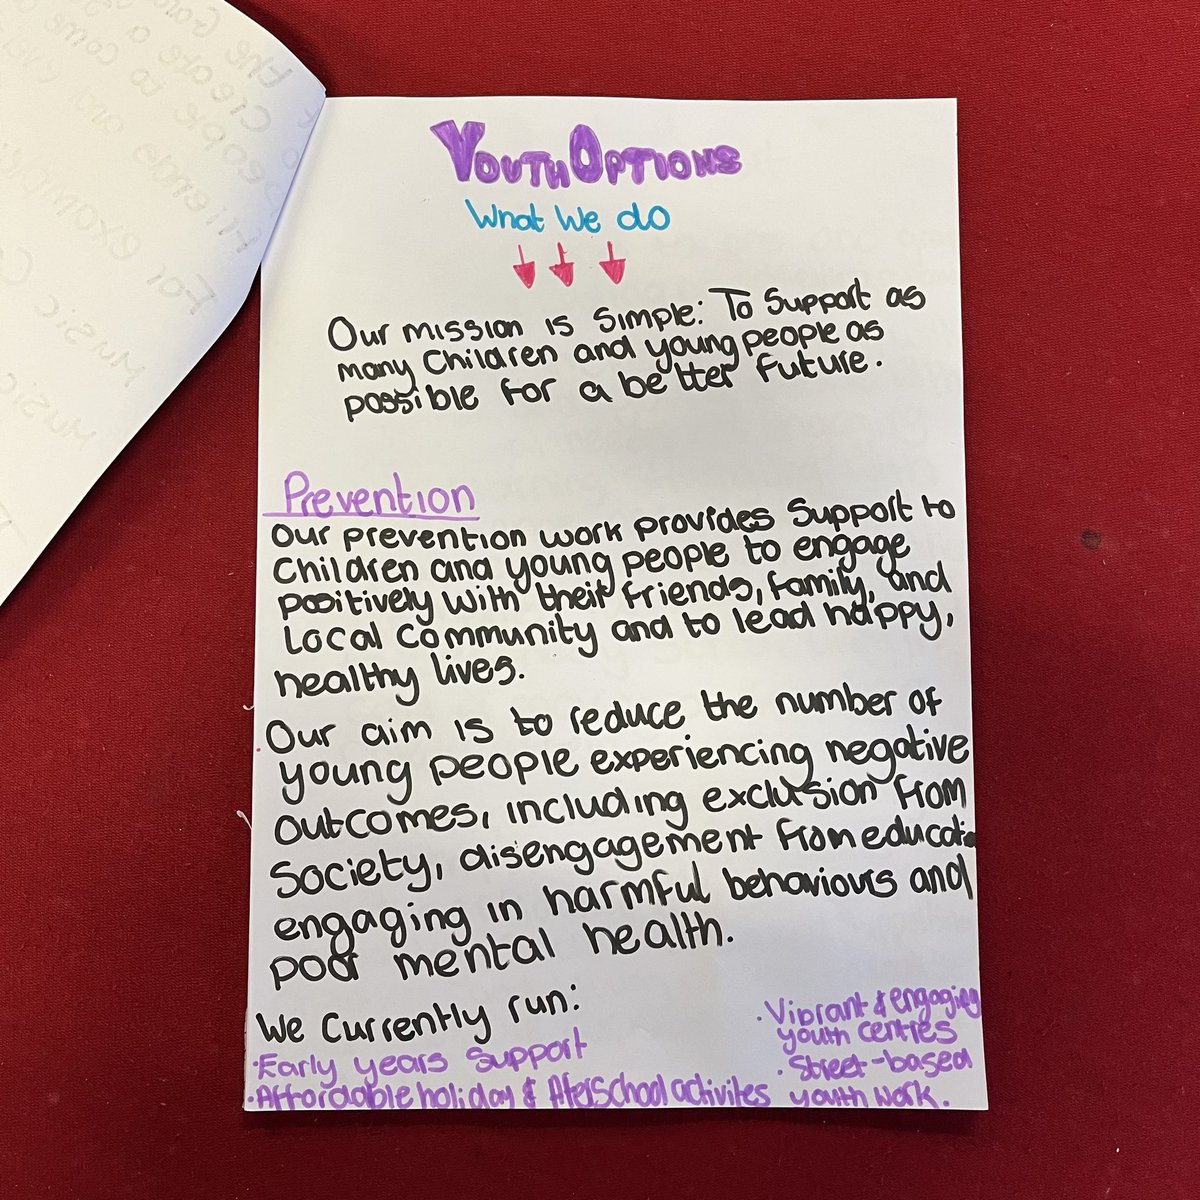 YOUTH OPTIONS
What We do
Our mission is Simple: To Support as
many Children and young people as
possible for a better Future.
Prevention
Our prevention work provides Support to
Children and young people to engage
positively with their friends, family, and
Local Community and to lead happy,
healthy lives.
Our aim is to reduce the number of
young people experiencing negative
outcomes, including exclusion from
Society, disengagement from educatio
engaging in harmful behaviours and
poor mental health.
We Currently run:
·Early years Support
·Affordable holiday & AferSchool activites
·Vibrant & engaging
youth centres
·Street-based
youth work.
People
Music
Music